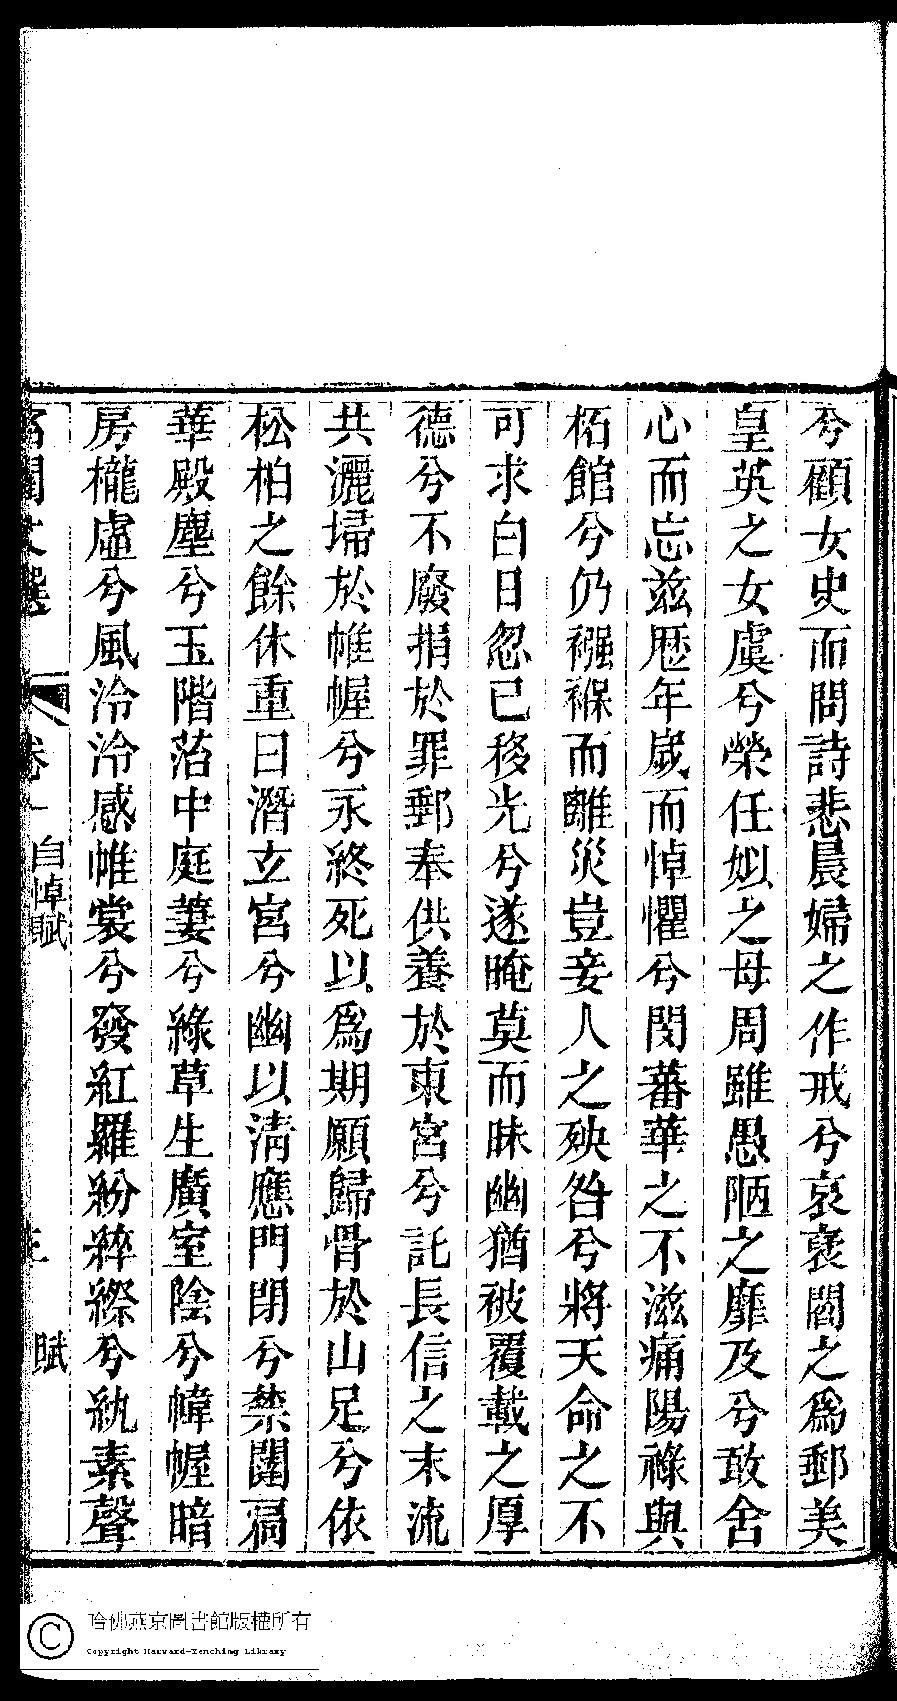 兮顧女史而問詩悲晨婦之作戒兮哀褒閻之爲郵美
皇英之女虞兮榮任姒之母周雖愚陋之靡及兮敢舍
心而忘茲歴年歲而悼懼兮閔蕃華之不滋痛陽祿與
柘館兮仍襁褓而離災豈妾人之殃咎兮將天命之不
可求白日忽已移光兮遂晻莫而昧幽猶被覆載之厚
德兮不廢捐於罪郵奉供養於東宮兮託長信之末流
共灑埽於帷幄兮永終死以爲期願歸骨於山足兮依
松柏之餘休重曰潛玄宮兮幽以淸應門閉兮禁闥扃
華殿塵兮玉階菭中庭萋兮綠草生廣室陰兮幃幄暗
房櫳虛兮風泠泠感帷裳兮發紅羅紛綷縩兮紈素聲
名閨文選 卷一 自悼賦 賦
哈佛燕京圖書館版權所有
Copyright Harvard-Yenching Library